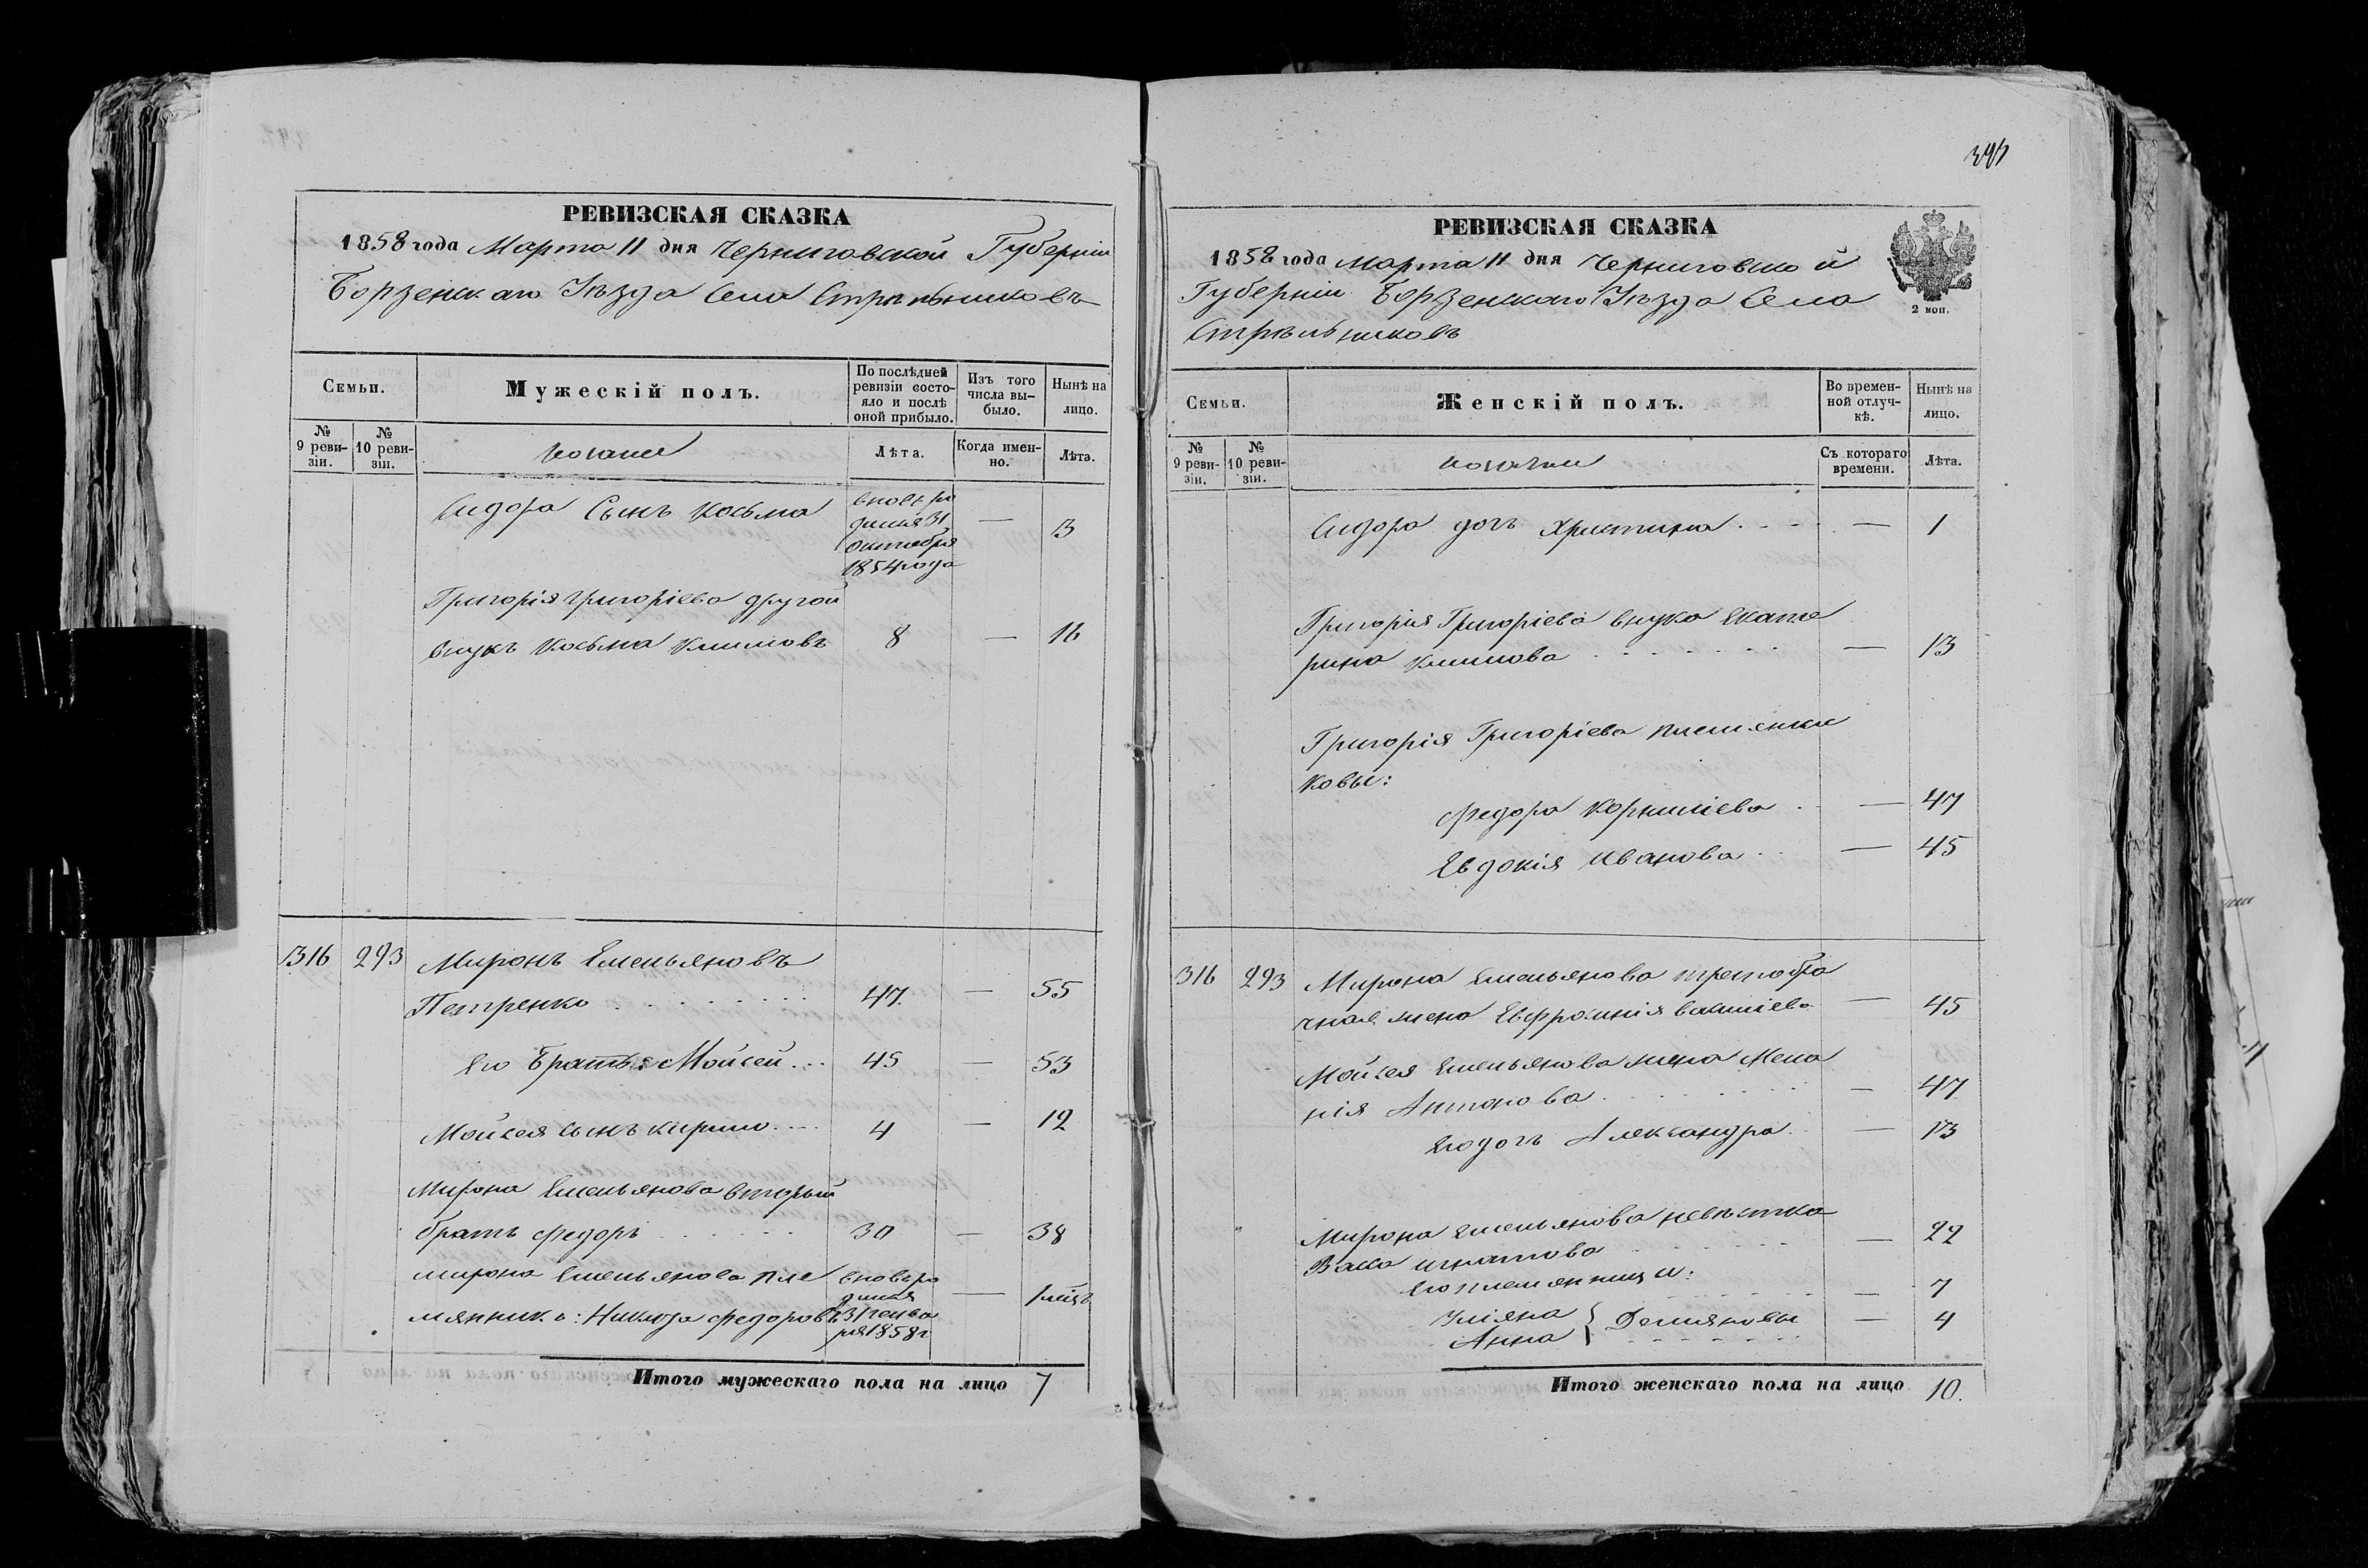 РЕВИЗСКАЯ СКАЗКА
1858 года Марта 11 дня Черниговской Губерніи
Борзенскаго Уѣзда Села Стрѣльниковъ
Семьи.
Мужескій полъ.
По послѣдней ревизіи состояло и послѣ оной прибыло.
Изъ того числа выбыло.
Нынѣ на лицо.
№ 9 ревизіи.
№ 10 ревизіи.
козаки
Лѣта.
Когда именно.
Лѣта.
Сидора Сынъ Косьма вновь ро — 3
дился 31
октября
1854 года
Григорія Григоріева другой
внукъ Косьма Климовъ 8 — 16
316 293 Миронъ Емельяновъ
Петренко 47 — 55
Его Братья: Мойсей 45 — 53
Мойсея сынъ Кирило 4 — 12
Мирона Емельянова вторый
братъ Федоръ 30 — 38
Мирона Емельянова пле вновь ро
дился —
мянникъ: Никита Федоровъ 31 генва
ря 1858 г
Итого мужескаго пола на лицо 7
РЕВИЗСКАЯ СКАЗКА
1858 года Марта 11 дня Черниговской
Губерніи Борзенскаго Уѣзда Села
Стрѣльниковъ
2 коп.
Семьи.
Женскій полъ.
Во временной отлучкѣ.
Нынѣ на лицо.
№ 9 ревизіи.
№ 10 ревизіи.
козачки
Съ котораго времени.
Лѣта.
Сидора дочь Христина — 1
Григорія Григоріева внука Екате
рина Климова — 13
Григорія Григоріева племянни
ковы:
Федора Корниліева — 47
Евдокія Иванова — 45
316 293 Мирона Емельянова третобра
чная жена Евфросинія Василіева — 45
Мойсея Емельянова жена Мела
нія Антонова — 47
Его дочь Александра — 13
Мирона Емельянова невѣстка
Васса Игнатова — 22
Его племянницы: — 7
Уліяна
Анна } Демяновы — 4
Итого женскаго пола на лицо 10.